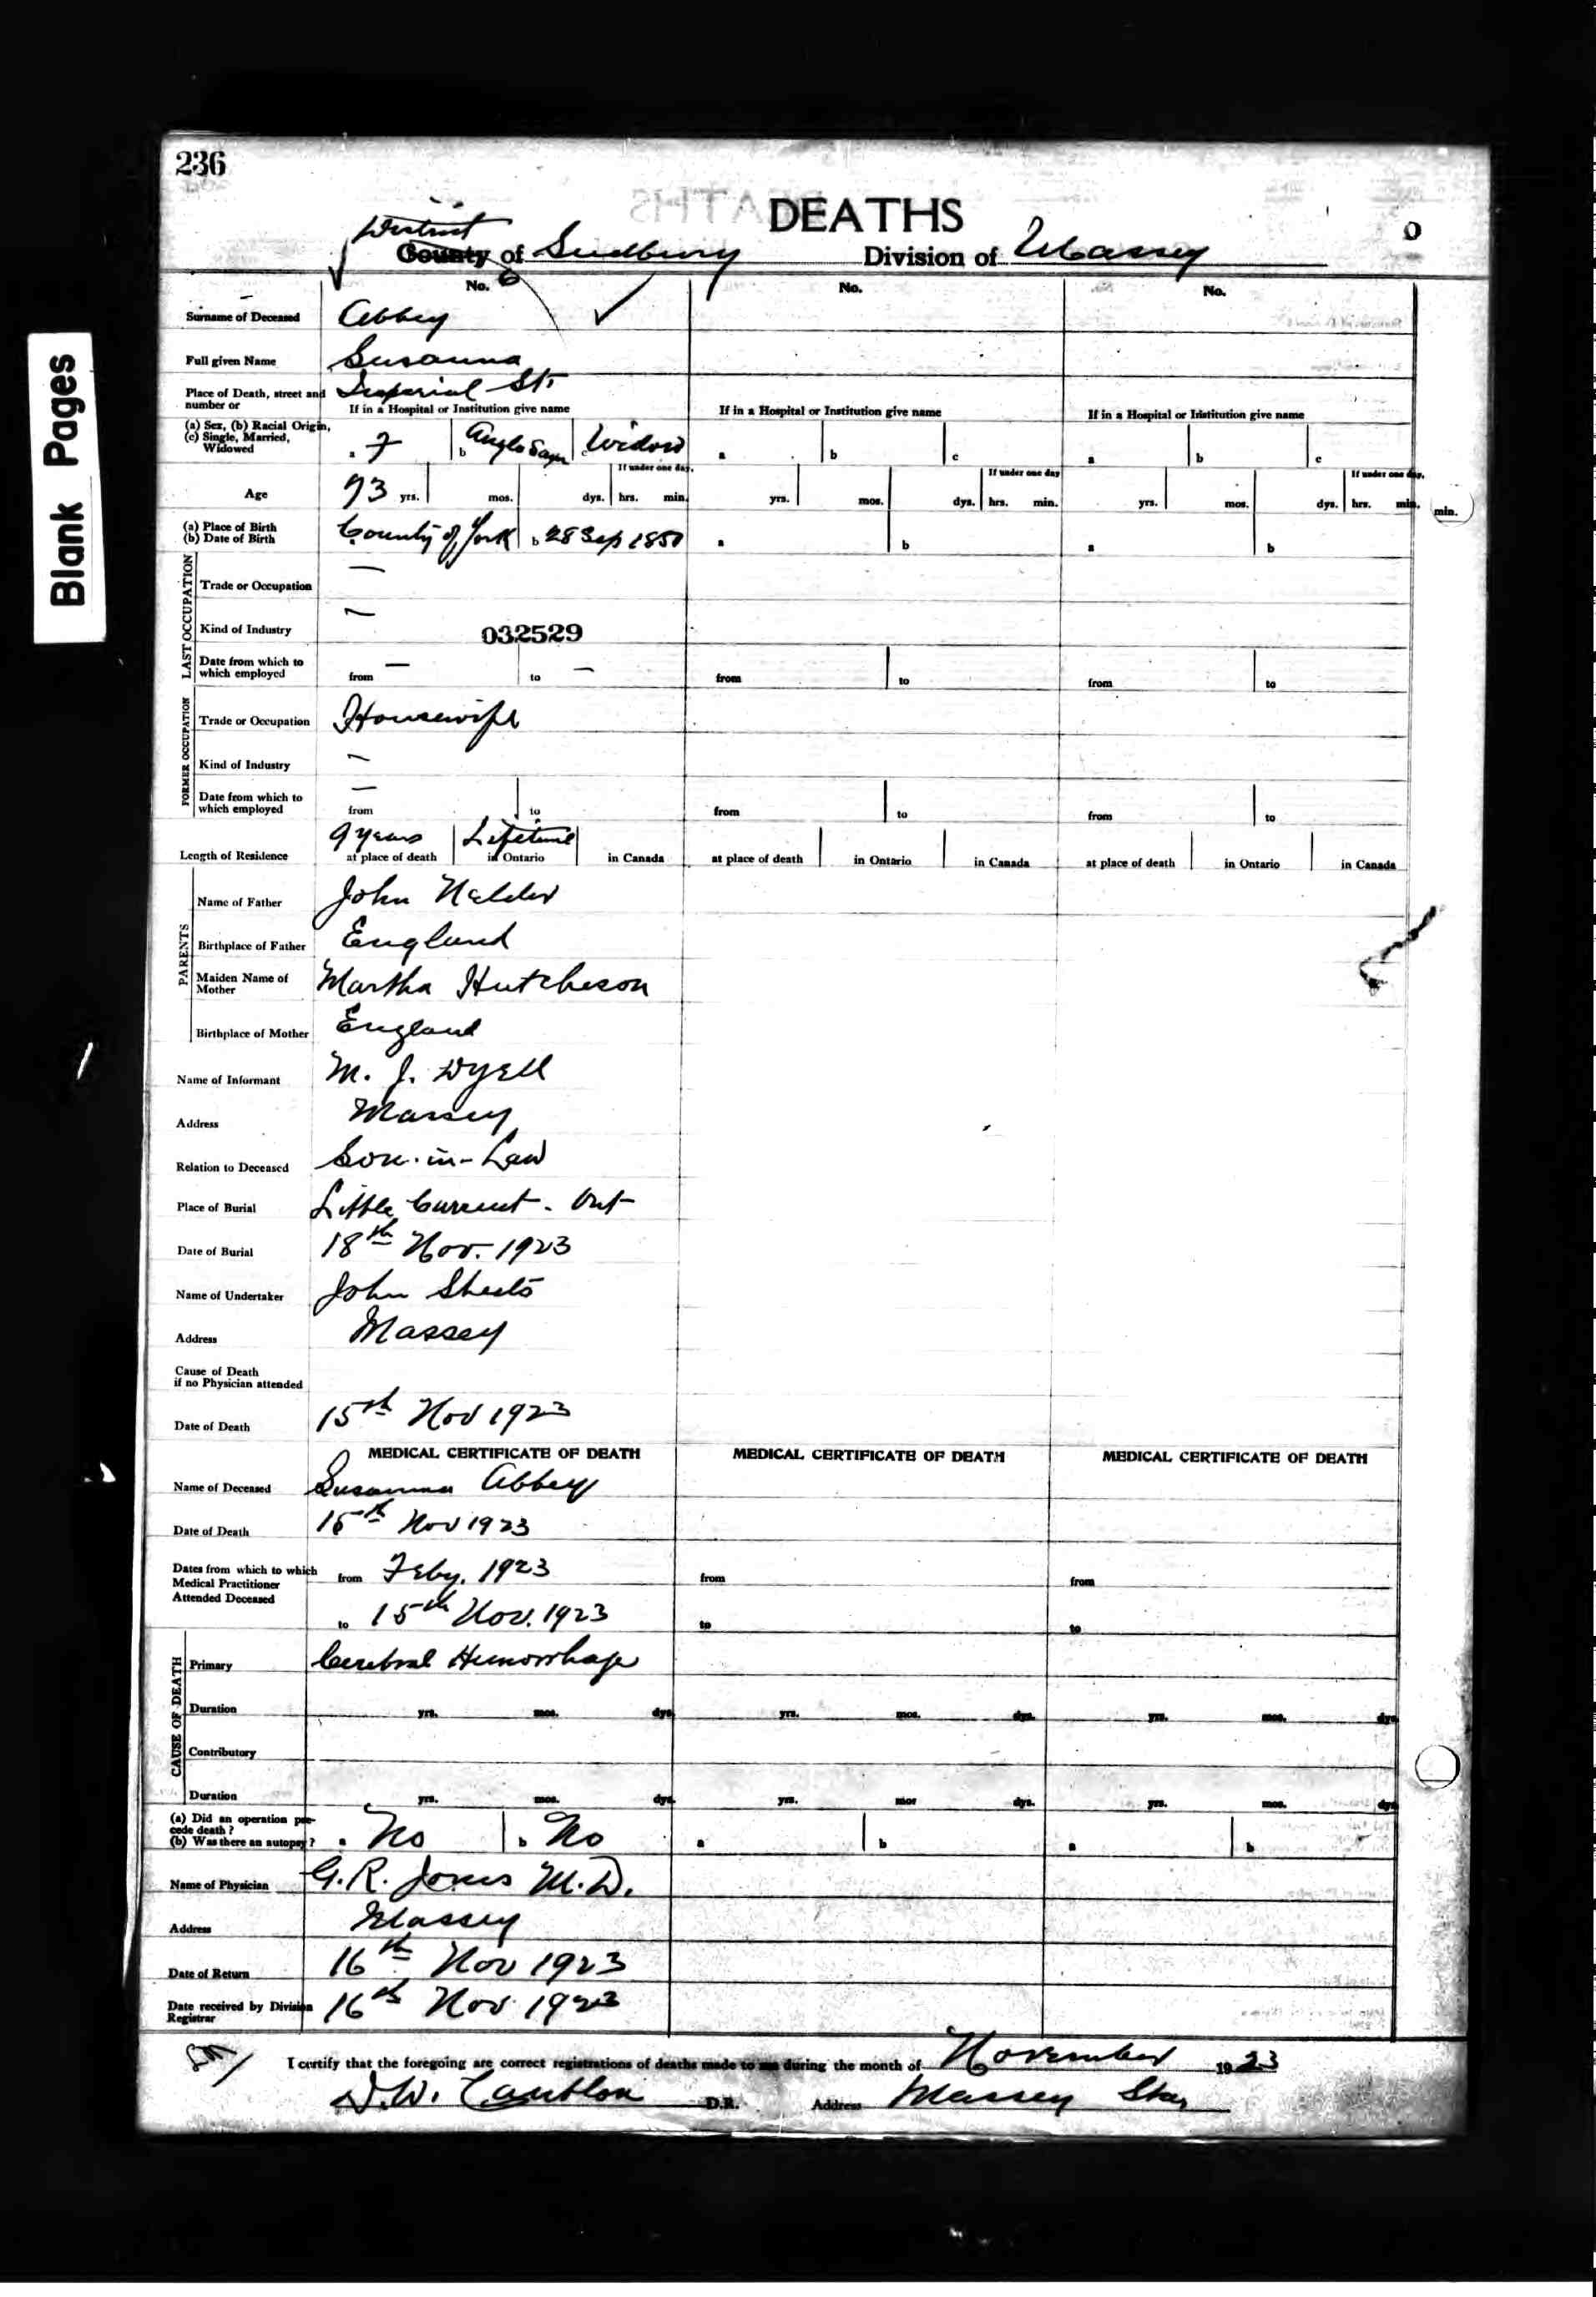 236
DEATHS
District
County of Sudbury Division of Massey
No. 6 No. No.
Surname of Deceased Abbey
Full given Name Susanna
Place of Death, street and number or Imperial St.
If in a Hospital or Institution give name If in a Hospital or Institution give name If in a Hospital or Institution give name
(a) Sex, (b) Racial Origin, (c) Single, Married, Widowed a F b Anglo Saxn c Widow a b c a b c
Age 73 yrs. mos. dys. If under one day. hrs. min. yrs. mos. dys. If under one day hrs. min. yrs. mos. dys. If under one day. hrs. min. min.
(a) Place of Birth (b) Date of Birth County of York b 28 Sep 1850 a b a b
LAST OCCUPATION
Trade or Occupation —
Kind of Industry —
032529
Date from which to which employed from — to — from to from to
FORMER OCCUPATION
Trade or Occupation Housewife
Kind of Industry —
Date from which to which employed — from to from to from to
Length of Residence 9 years at place of death Lifetime in Ontario in Canada at place of death in Ontario in Canada at place of death in Ontario in Canada
PARENTS
Name of Father John
Birthplace of Father England
Maiden Name of Mother Martha Hutcheson
Birthplace of Mother England
Name of Informant M. J. Dyell
Address Massey
Relation to Deceased Son-in-Law
Place of Burial Little Current - Ont
Date of Burial 18th Nov. 1923
Name of Undertaker John
Address Massey
Cause of Death if no Physician attended
Date of Death 15th Nov 1923
MEDICAL CERTIFICATE OF DEATH MEDICAL CERTIFICATE OF DEATH MEDICAL CERTIFICATE OF DEATH
Name of Deceased Susanna Abbey
Date of Death 15th Nov 1923
Dates from which to which Medical Practitioner Attended Deceased from Feby. 1923 from from
to 15th Nov. 1923 to to
CAUSE OF DEATH
Primary Cerebral Hemorrhage
Duration yrs. mos. dys. yrs. mos. dys. yrs. mos. dys.
Contributory
Duration yrs. mos. dys. yrs. mor dys. yrs. mos. dys.
(a) Did an operation precede death? (b) Was there an autopsy? a No b No a b a b
Name of Physician G. R. Jones M.D.
Address Massey
Date of Return 16th Nov 1923
Date received by Division Registrar 16th Nov. 1923
I certify that the foregoing are correct registrations of deaths made to me during the month of November 1923
D.R. Address Massey
Blank Pages